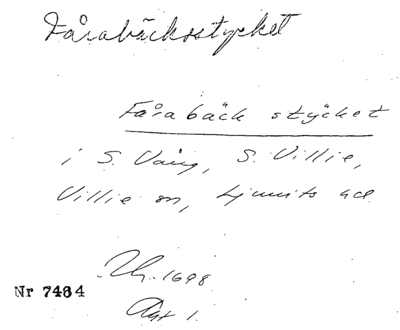 Fårabäcksstycket
Fårabäck stycket
i S. Vång, S. Villie,
Villie sn, Ljunits hd
1698
Nr 7484
Akt 1.